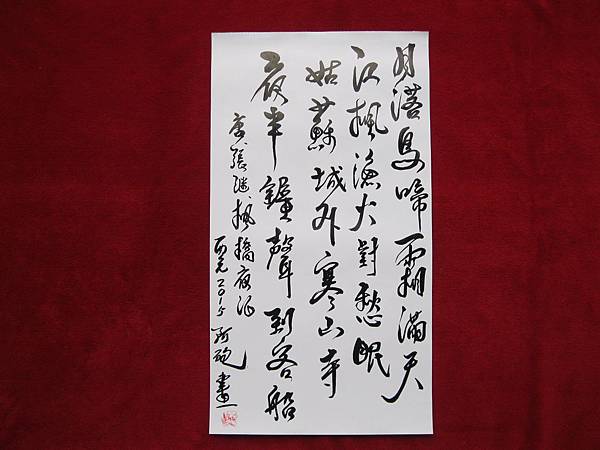 月落烏啼霜滿天
江楓漁火對愁眠
姑蘇城外寒山寺
夜半鐘聲到客船
唐張繼楓橋夜泊
西元2015 書